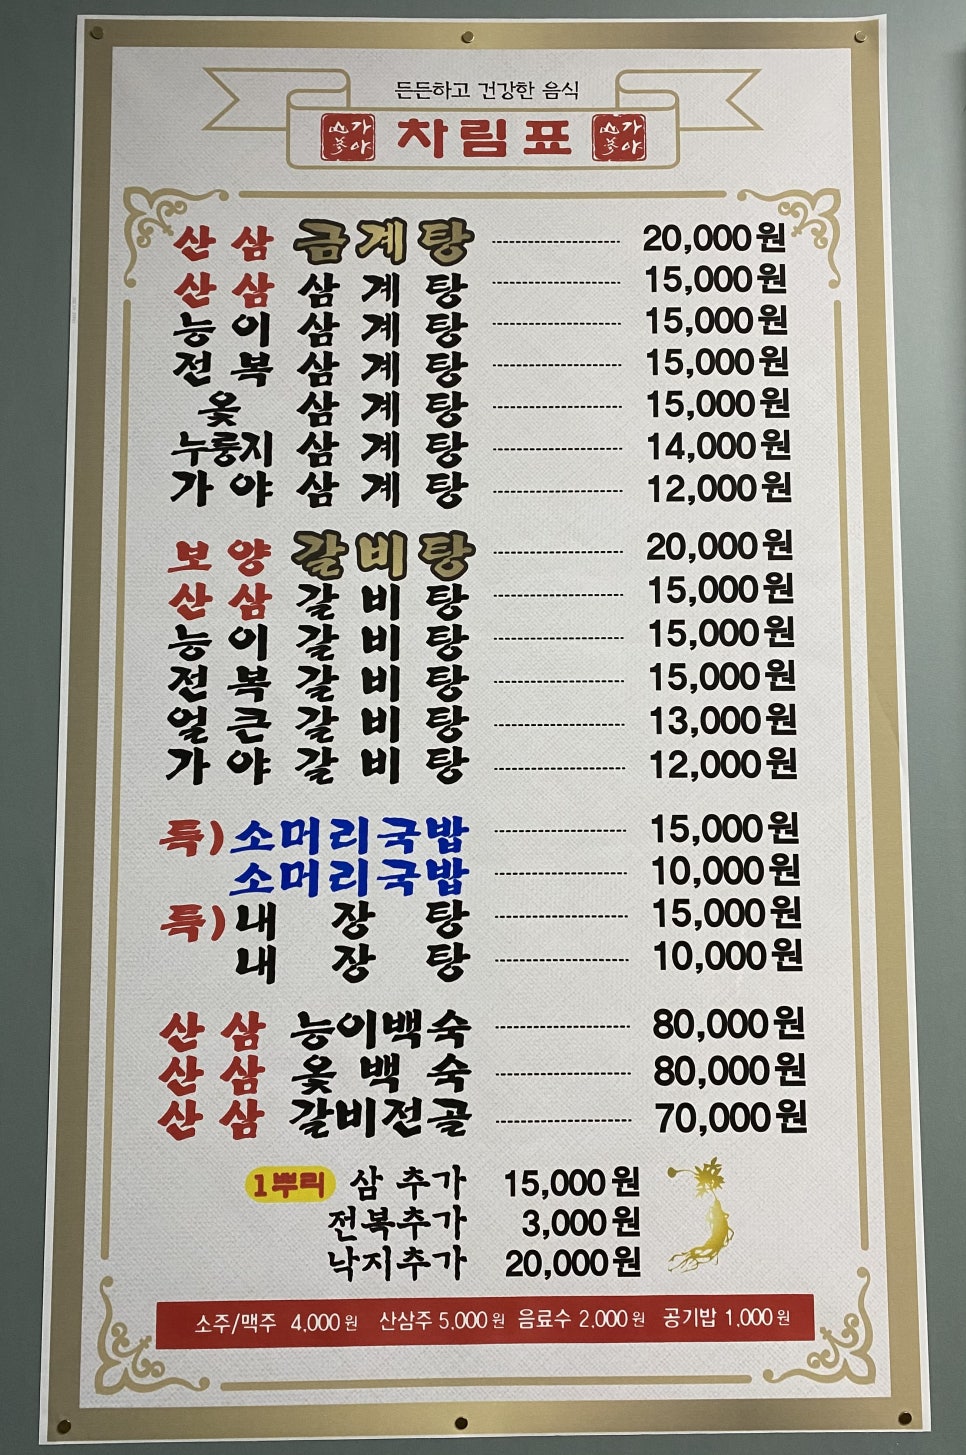 든든하고 건강한 음식
가야 차림표 가야
산삼 금계탕 20,000원
산삼 삼계탕 15,000원
능이 삼계탕 15,000원
전복 삼계탕 15,000원
옻 삼계탕 15,000원
누룽지 삼계탕 14,000원
가야 삼계탕 12,000원
보양 갈비탕 20,000원
산삼 갈비탕 15,000원
능이 갈비탕 15,000원
전복 갈비탕 15,000원
얼큰 갈비탕 13,000원
가야 갈비탕 12,000원
특) 소머리국밥 15,000원
소머리국밥 10,000원
특) 내장탕 15,000원
내장탕 10,000원
산삼 능이백숙 80,000원
산삼 옻백숙 80,000원
산삼 갈비전골 70,000원
1뿌리 삼 추가 15,000원
전복추가 3,000원
낙지추가 20,000원
소주/맥주 4,000원 산삼주 5,000원 음료수 2,000원 공기밥 1,000원